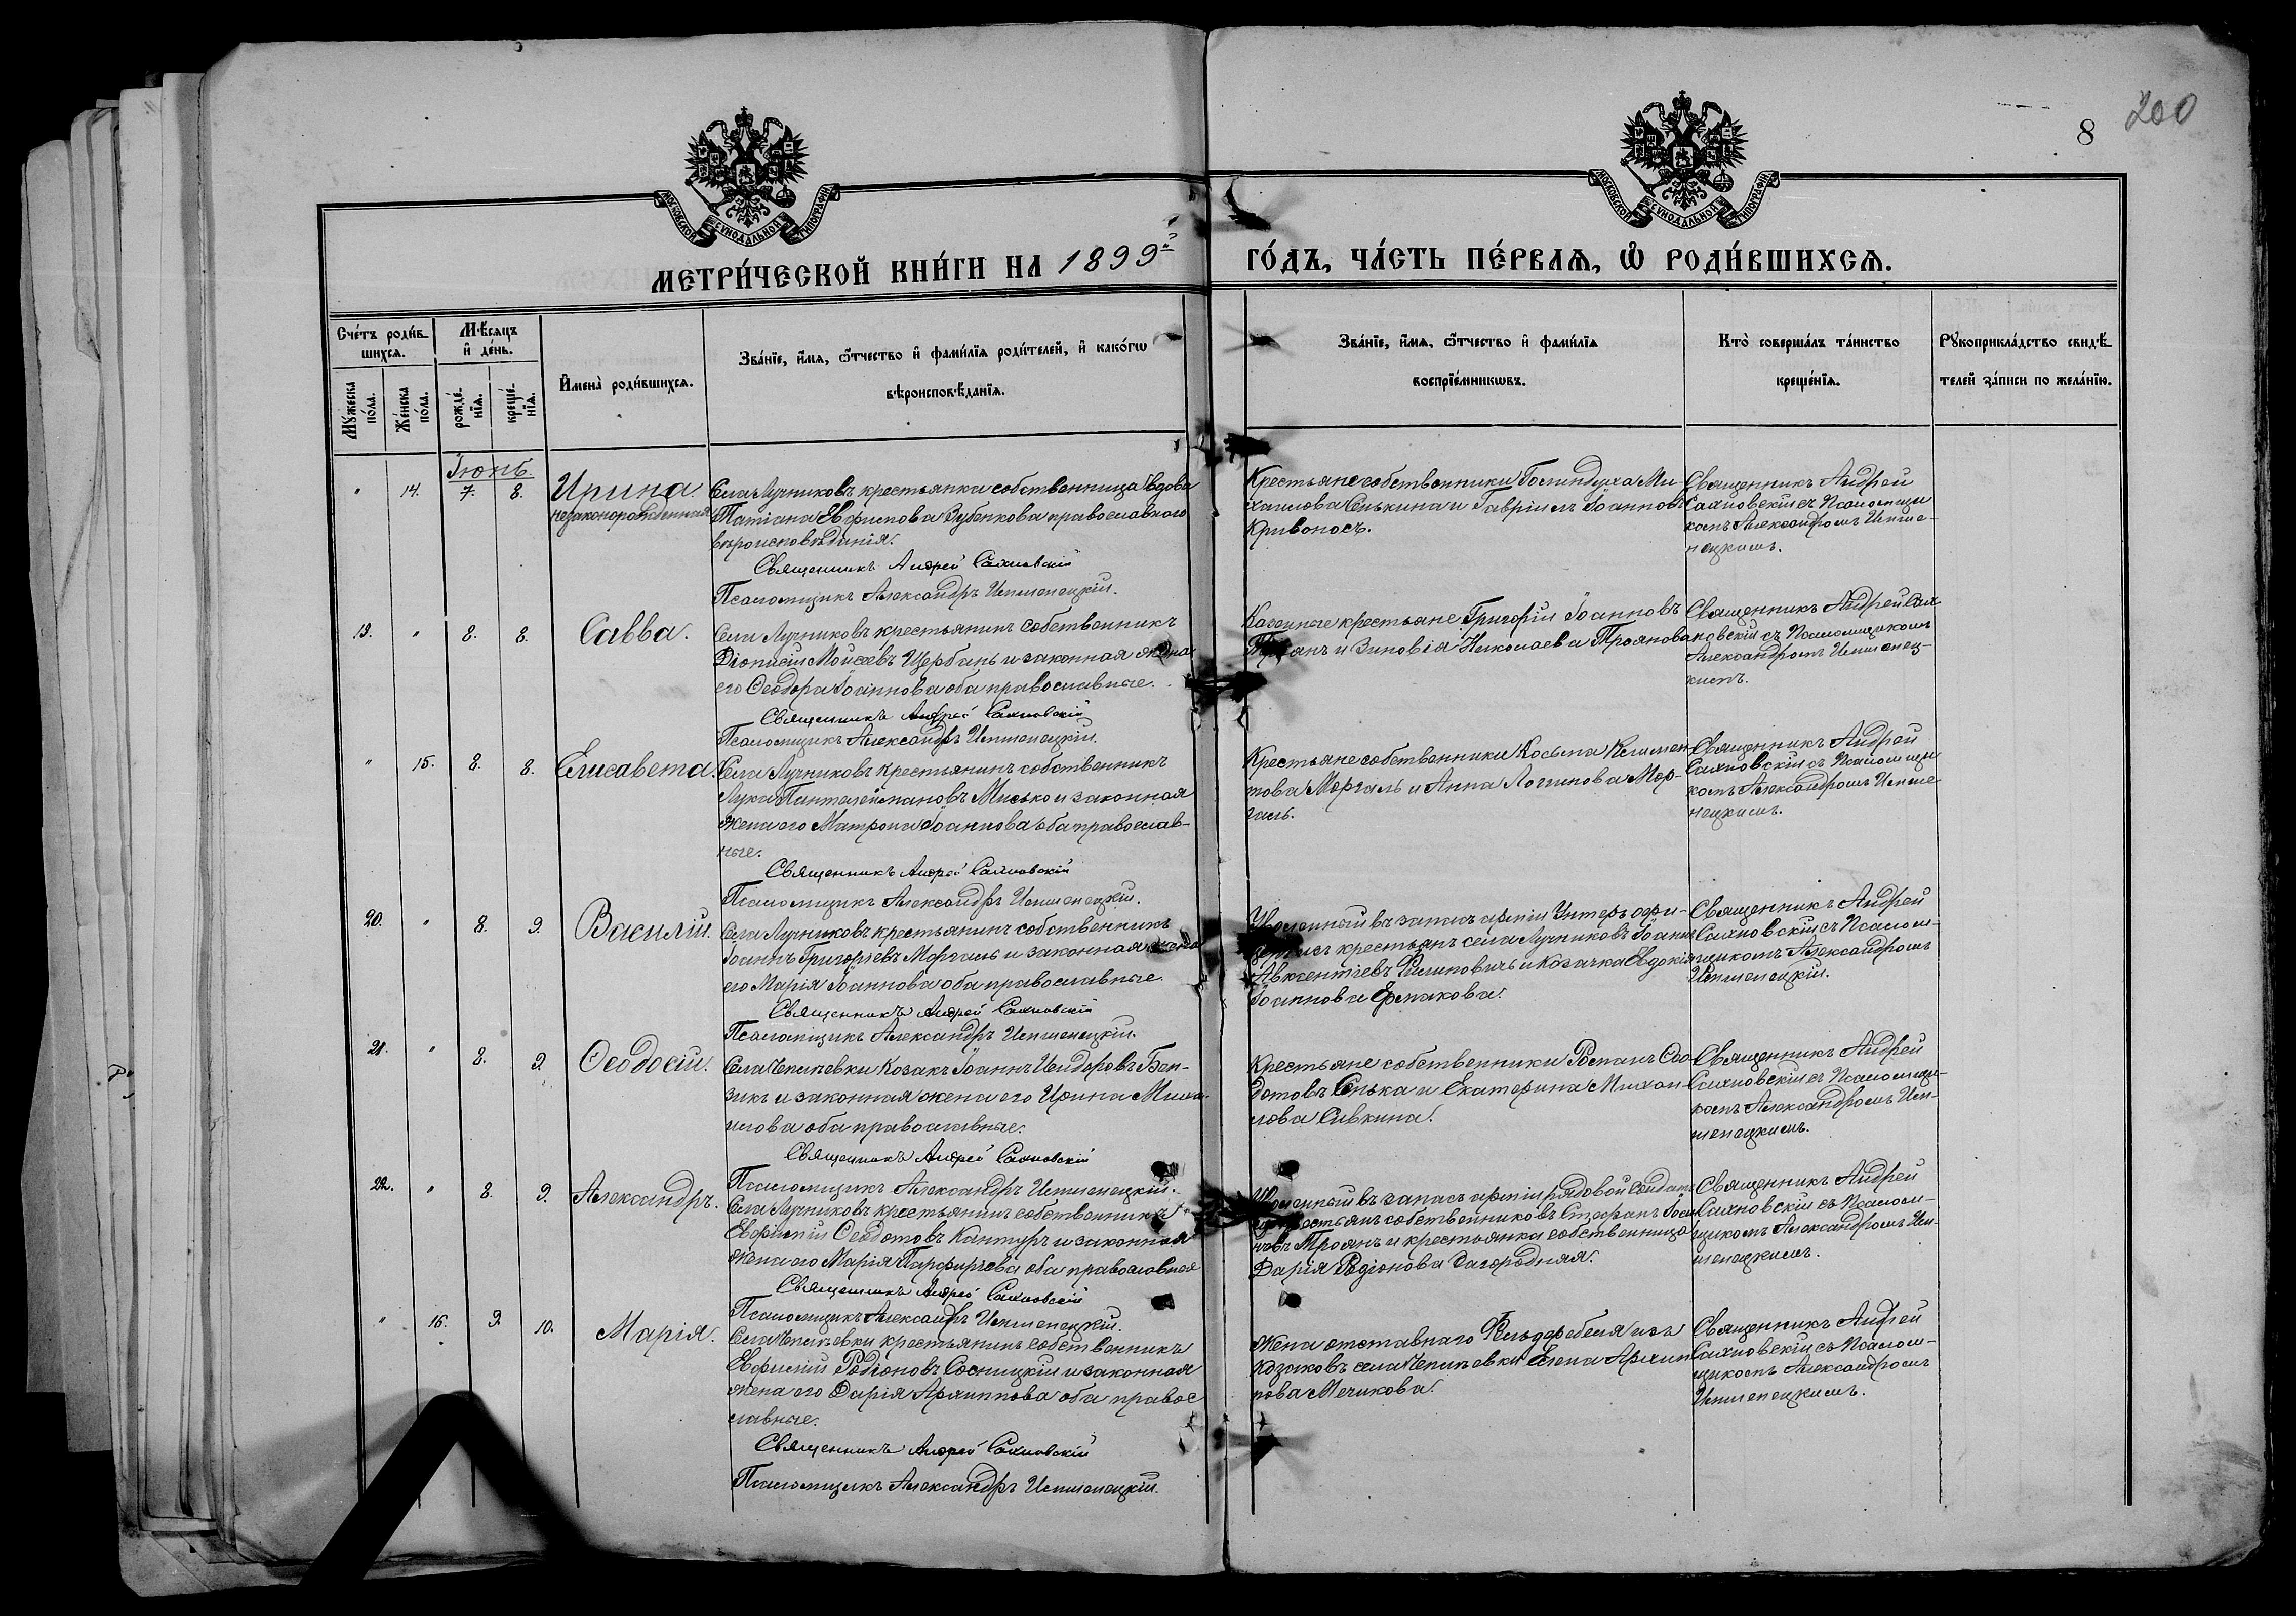 200
8
МОСКОВСКОЙ СѴНОДАЛЬНОЙ ТИПОГРАФІИ
МОСКОВСКОЙ СѴНОДАЛЬНОЙ ТИПОГРАФІИ
МЕТРИ́ЧЕСКОЙ КНИ́ГИ НА 1899й ГО́ДЪ, ЧА́СТЬ ПЕ́РВАѦ, Ѡ҆ РОДИ́ВШИХСѦ.
Сче́тъ роди́в-
шихся.
Му́жеска
по́ла.
Же́нска
по́ла.
Мѣ́сяцъ
и҆ де́нь.
рожде́-
нїя.
креще́-
нїя.
И҆мена̀ роди́вшихся.
Зва́нїе, и҆́мя, ѻ҆́тчество и҆ фами́лїя роди́телей, и҆ како́гѡ
вѣроисповѣ́данїя.
Зва́нїе, и҆́мя, ѻ҆́тчество и҆ фами́лїя
воспрїе́мникѡвъ.
Кто̀ соверша́лъ та́инство
креще́нїя.
Рꙋкоприкла́дство свидѣ́-
телей за́писи по жела́нїю.
Іюнь.
" 14. 7. 8.
Ирина
незаконорожденная
Села Лучниковъ крестьянка собственница вдова
Татіана Евфимова Зубенкова православнаго
вѣроисповѣданія.
Священникъ Андрей Сахновскій
Псаломщикъ Александръ Имшенецкій.
Крестьяне собственники Гликидуха Ми-
хаилова Сенькина и Гавріилъ Іоанновъ
Кривоносъ.
Священникъ Андрей
Сахновскій съ Псаломщи
комъ Александромъ Имше-
нецкимъ.
19. " 8. 8.
Савва.
Села Лучниковъ крестьянинъ собственникъ
Діонисій Моисеевъ Щербань и законная жена
его Ѳеодора Іоаннова оба православные.
Священникъ Андрей Сахновскій
Псаломщикъ Александръ Имшенецкій.
Казенные крестьяне Григорій Іоанновъ
Троянъ и Зиновія Николаева Троянова
Священникъ Андрей Сах
новскій съ Псаломщикомъ
Александромъ Имшенец-
кимъ.
" 15. 8. 8.
Елисавета.
Села Лучниковъ крестьянинъ собственникъ
Лука Пантелеймановъ Мисько и законная
жена его Матрона Іоаннова оба православ-
ные.
Священникъ Андрей Сахновскій
Псаломщикъ Александръ Имшенецкій.
Крестьяне собственники Косьма Климен-
това Моргаль и Анна Логинова Мор-
галь.
Священникъ Андрей
Сахновскій съ Псаломщи
комъ Александромъ Имше
нецкимъ.
20. " 8. 9.
Василій.
Села Лучниковъ крестьянинъ собственникъ
Іоаннъ Григорьевъ Моргаль и законная жена
его Марія Іоаннова оба православные.
Священникъ Андрей Сахновскій
Псаломщикъ Александръ Имшенецкій.
Уволенный въ запасъ арміи Унтеръ офи-
церъ изъ крестьянъ села Лучниковъ Іоаннъ
Авксентіевъ Филиповичъ и козачка Евдокія
Іоаннова Ермакова.
Священникъ Андрей
Сахновскій съ Псалом-
щикомъ Александромъ
Имшенецкій.
21. " 8. 9.
Ѳеодосій.
Села Чепіевки Козакъ Іоаннъ Исидоровъ Бон-
зикъ и законная жена его Ирина Миха-
илова оба православные.
Священникъ Андрей Сахновскій
Псаломщикъ Александръ Имшенецкій.
Крестьяне собственники Романъ Ѳео-
дотовъ Сенька и Екатерина Михаи-
лова Сивкина.
Священникъ Андрей
Сахновскій съ Псаломщи-
комъ Александромъ Им-
шенецкимъ.
22. " 8. 9.
Александръ.
Села Лучниковъ крестьянинъ собственникъ
Евфимій Ѳеодотовъ Кантуръ и законная
жена его Марія Парфирьева оба православные
Священникъ Андрей Сахновскій
Псаломщикъ Александръ Имшенецкій.
Уволенный въ запасъ арміи рядовой солдатъ
изъ крестьянъ собственниковъ Стефанъ Іоан
новъ Троянъ и крестьянка собственница
Дарія Родіонова Загородняя.
Священникъ Андрей
Сахновскій съ Псалом-
щикомъ Александромъ Им-
шенецкимъ.
" 16. 9. 10.
Марія.
Села Чепіевки крестьянинъ собственникъ
Евфимій Родіоновъ Сосницкій и законная
жена его Дарія Архиппова оба правос
лавные.
Священникъ Андрей Сахновскій
Псаломщикъ Александръ Имшенецкій.
Жена отставнаго Фельдфебеля изъ
козаковъ села Чепіевки Елена Архип
пова Мечикова.
Священникъ Андрей
Сахновскій съ Псалом-
щикомъ Александромъ
Имшенецкимъ.